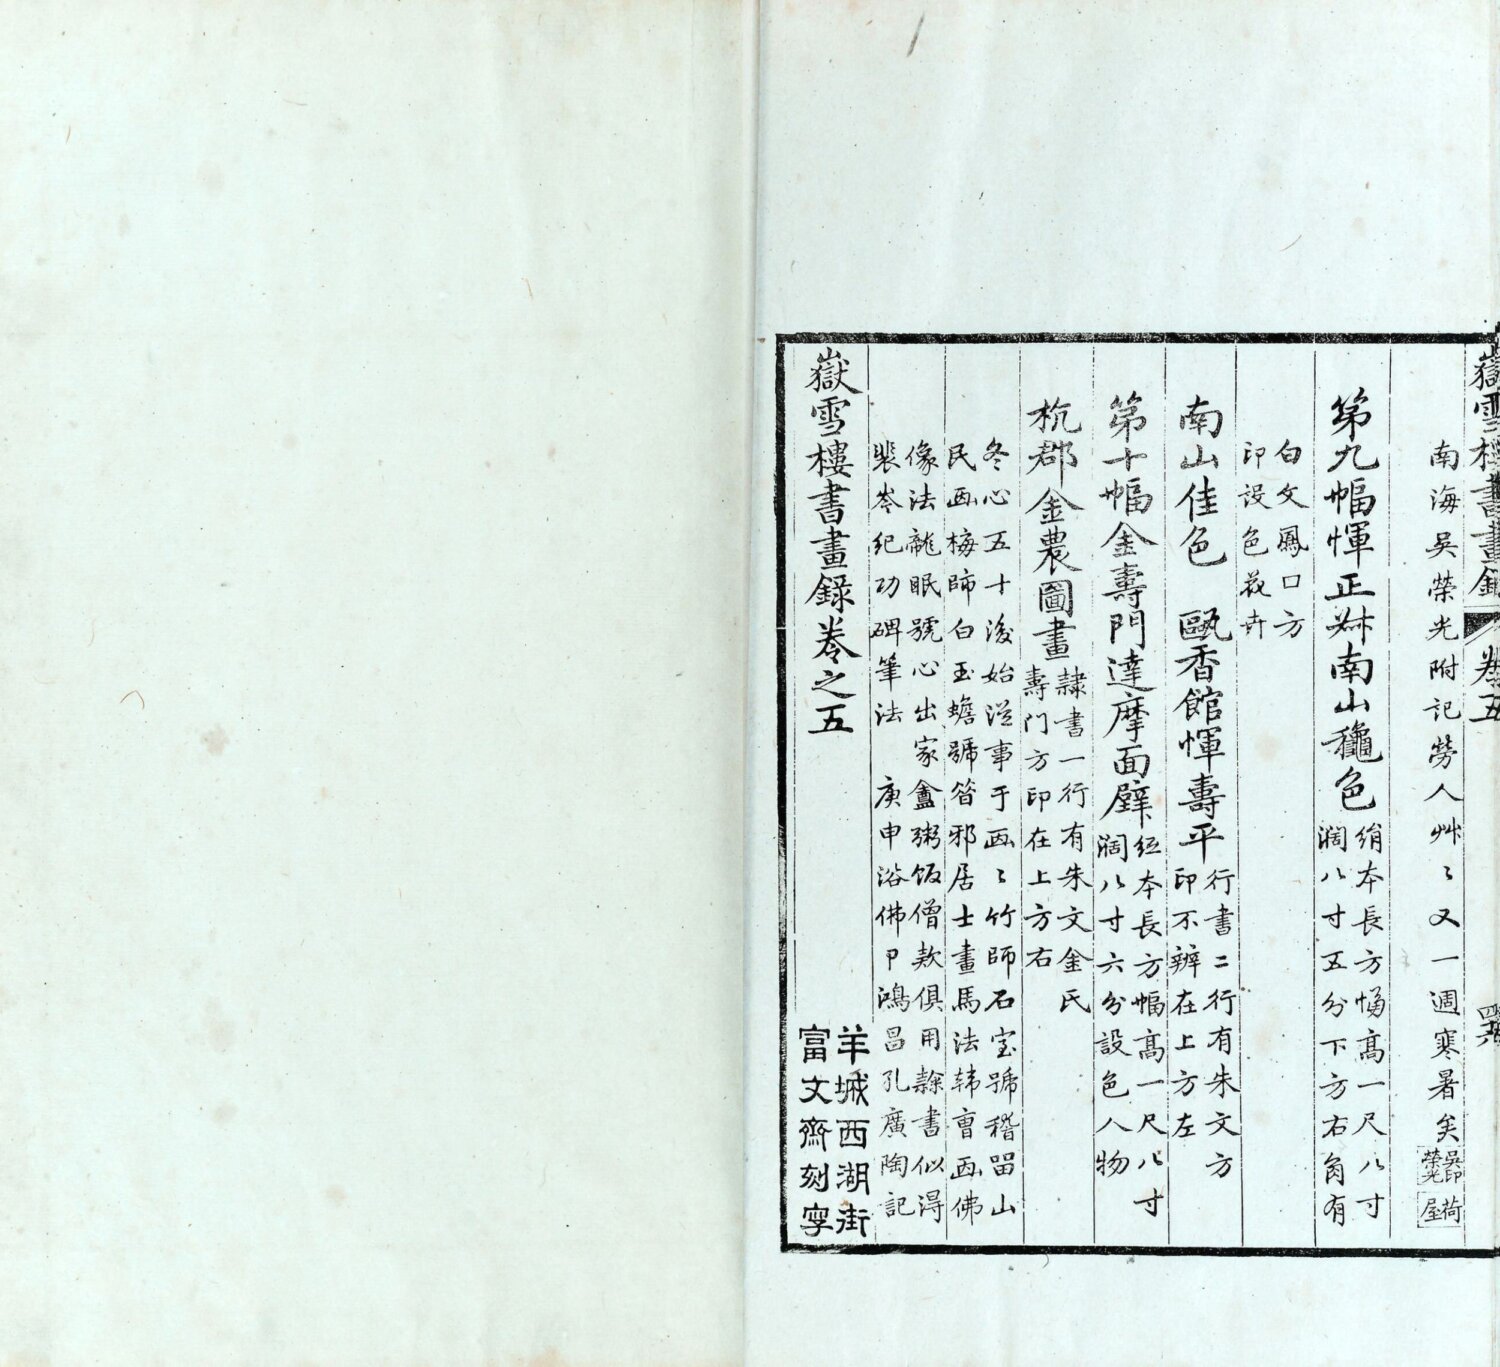 嶽雪樓書畫錄
卷五
四六
南海吳榮光附記勞人艸〻又一週寒暑矣
吳印榮光
荷屋
第九幅惲正叔南山穐色
絹本長方幅高一尺八寸
濶八寸五分下方右角有
白文鳳口方
印設色花卉
南山佳色　甌香館惲壽平
行書二行有朱文方
印不辨在上方左
第十幅金壽門達摩面壁
紙本長方幅高一尺八寸
濶八寸六分設色人物
杭郡金農圖畫
隷書一行有朱文金氏
壽門方印在上方右
冬心五十後始從事于画〻竹師石室號稽畱山
民画梅師白玉蟾號笤邪居士畫馬法韩曺画佛
像法龍眠號心出家盦粥飯僧欵俱用隷書似得
裴岑紀功碑筆法　庚申浴佛日鴻昌孔廣陶記
嶽雪樓書畫錄卷之五
羊城西湖街
富文齋刻字